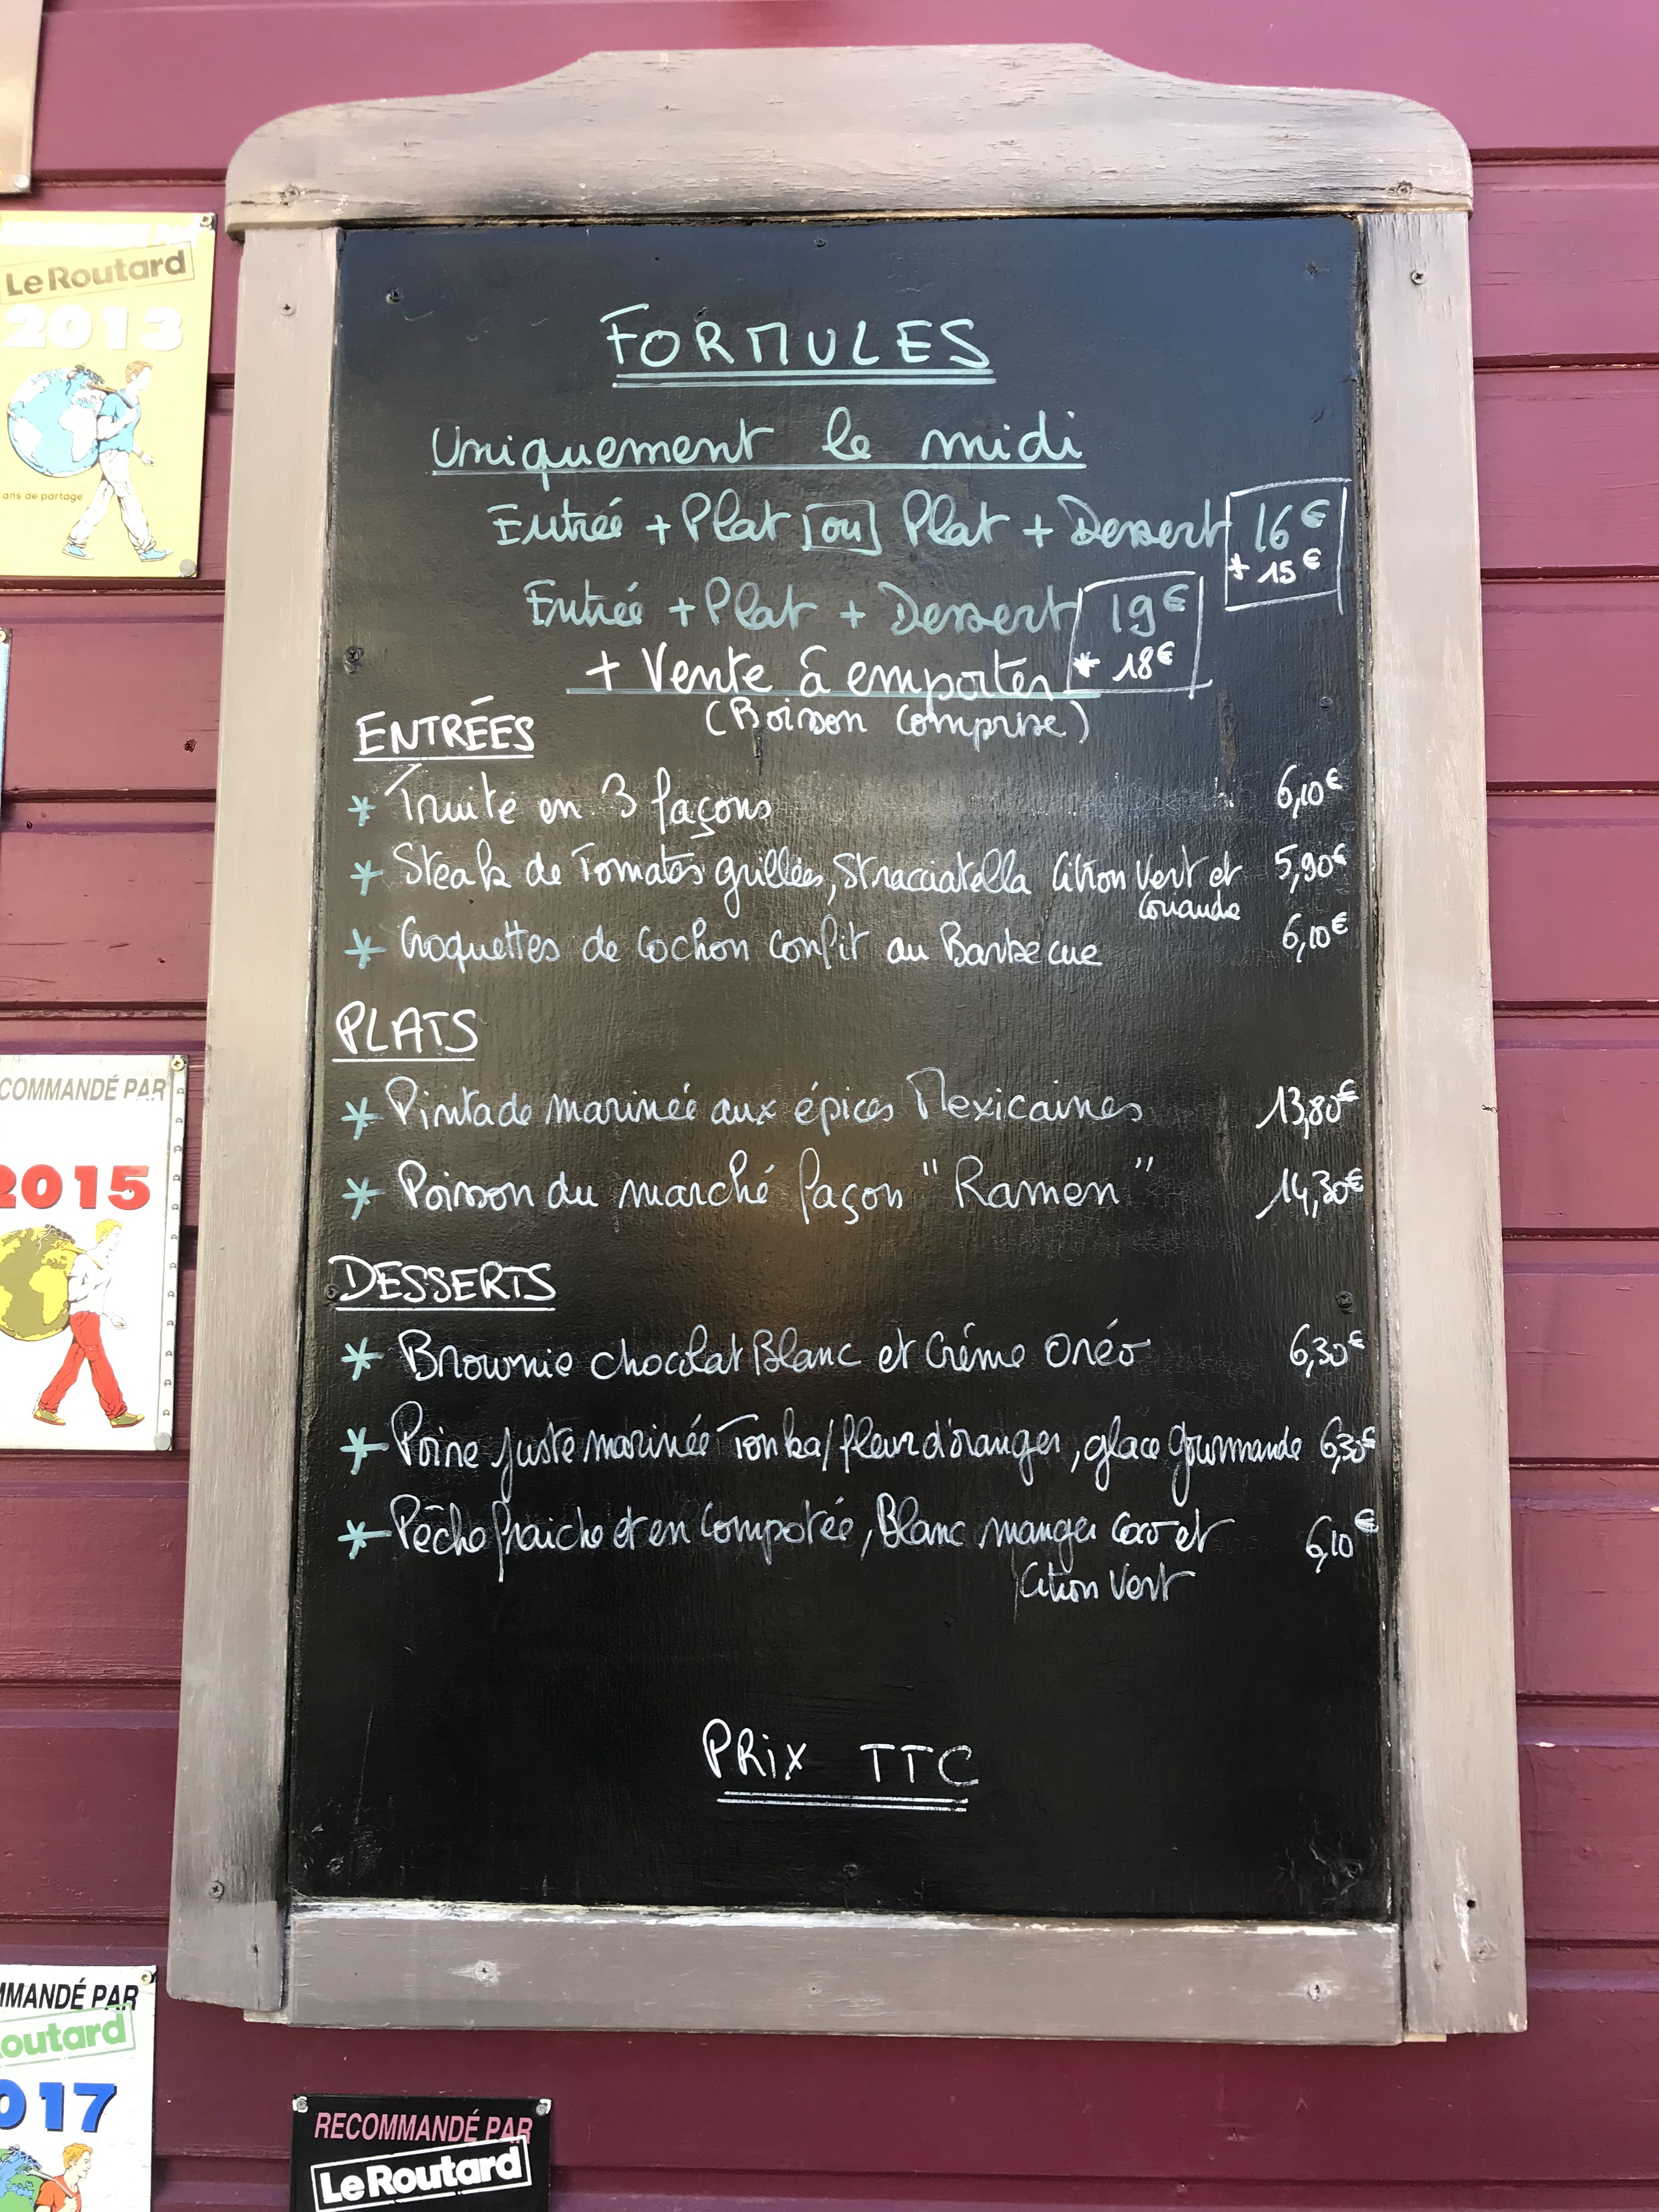 FORMULES
Uniquement le midi
Entrée + Plat ou Plat + Dessert 16€
* 15€
Entrée + Plat + Dessert 19€
* 18€
* Vente à emporter
(Boisson comprise)
ENTRÉES
* Truite en 3 façons 6,10€
* Steak de Tomates grillées, Stracciatella Citron Vert et 5,90€
Coriandre
* Croquettes de Cochon confit au Barbecue 6,10€
PLATS
* Pintade marinée aux épices Mexicaines 13,80€
* Poisson du marché façon "Ramen" 14,30€
DESSERTS
* Brownie chocolat Blanc et Crème Oréo 6,30€
* Poire juste marinée Tonka/fleur d'oranger, glace gourmande 6,30€
* Pêche fraiche et en Compotée, Blanc manger Coco et 6,10€
Citron Vert
PRIX TTC
Le Routard
2013
ans de partage
COMMANDÉ PAR
2015
MMANDÉ PAR
outard
017
RECOMMANDÉ PAR
Le Routard